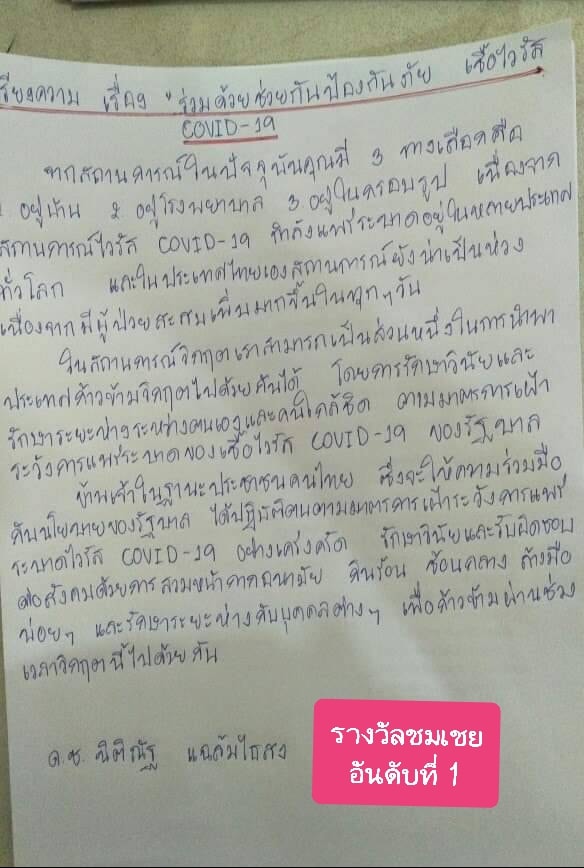 เรียงความ เรื่อง "ร่วมด้วยช่วยกันป้องกันภัย เชื้อไวรัส
COVID-19
จากสถานการณ์ในปัจจุบันคุณมี 3 ทางเลือกคือ
1 อยู่บ้าน 2 อยู่โรงพยาบาล 3 อยู่ในกรอบรูป เนื่องจาก
สถานการณ์ไวรัส COVID-19 กำลังแพร่ระบาดอยู่ในหลายประเทศ
ทั่วโลก และในประเทศไทยเองสถานการณ์ยังน่าเป็นห่วง
เนื่องจากมีผู้ป่วยสะสมเพิ่มมากขึ้นในทุกๆวัน
ในสถานการณ์วิกฤตเราสามารถเป็นส่วนหนึ่งในการนำพา
ประเทศก้าวข้ามวิกฤตไปด้วยกันได้ โดยการรักษาวินัยและ
รักษาระยะห่างระหว่างตนเองและคนใกล้ชิด ตามมาตรการเฝ้า
ระวังการแพร่ระบาดของเชื้อไวรัส COVID-19 ของรัฐบาล
ข้าพเจ้าในฐานะประชาชนคนไทย ซึ่งจะให้ความร่วมมือ
กับนโยบายของรัฐบาล ได้ปฏิบัติตนตามมาตรการเฝ้าระวังการแพร่
ระบาดไวรัส COVID-19 อย่างเคร่งครัด รักษาวินัยและรับผิดชอบ
ต่อสังคมด้วยการสวมหน้ากากอนามัย กินร้อน ช้อนกลาง ล้างมือ
บ่อยๆ และรักษาระยะห่างกับบุคคลต่างๆ เพื่อก้าวข้ามผ่านช่วง
เวลาวิกฤตนี้ไปด้วยกัน
ด.ช. นิติณัฐ
รางวัลชมเชย
อันดับที่ 1